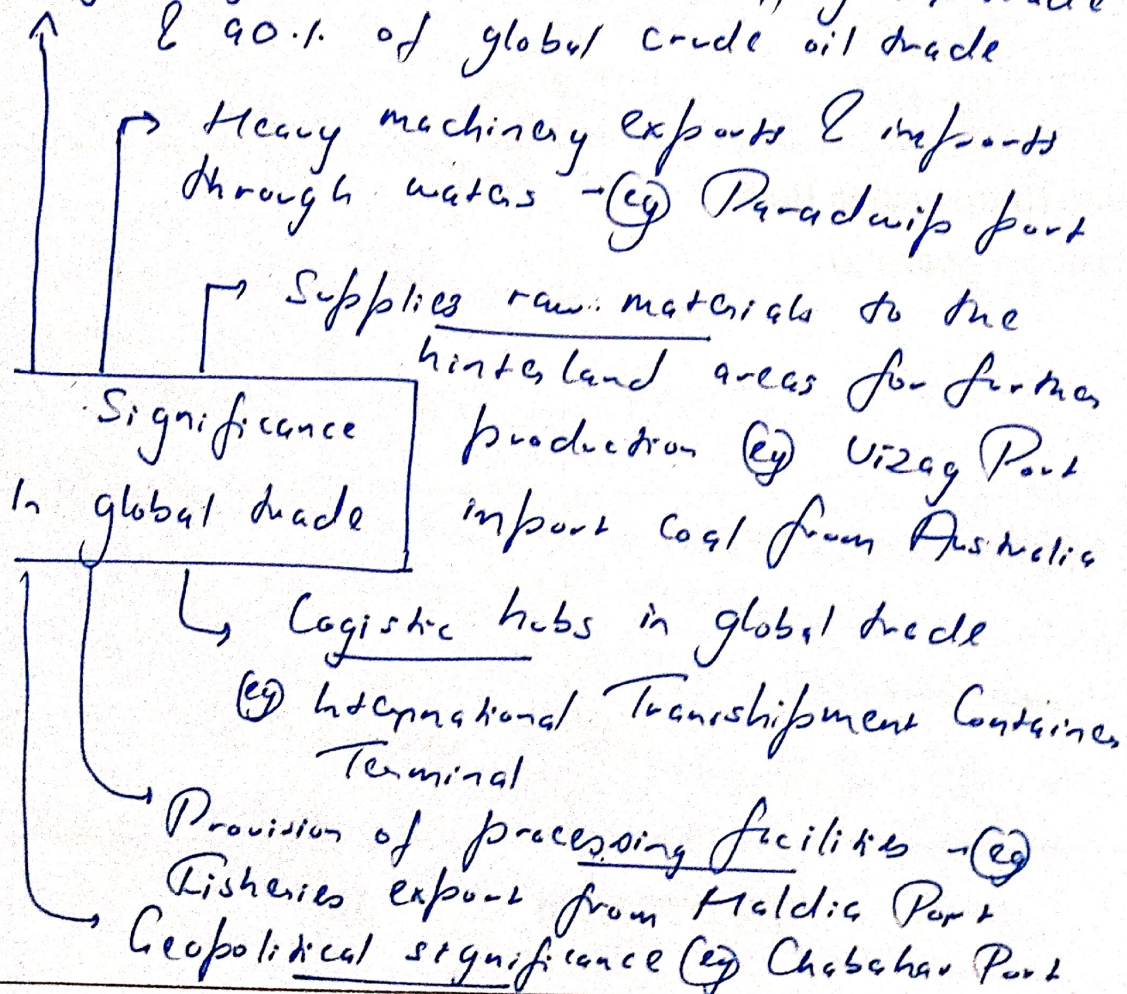 & 90% of global crude oil trade
Heavy machinery exports & imports
through waters - eg Paradwip port
Supplies raw materials to the
hinterland areas for further
Significance
production eg Vizag Port
In global trade
import coal from Australia
Logistic hubs in global trade
eg International Transhipment Container
Terminal
Provision of processing facilities - eg
Fisheries export from Haldia Port
Geopolitical significance eg Chabahar Port